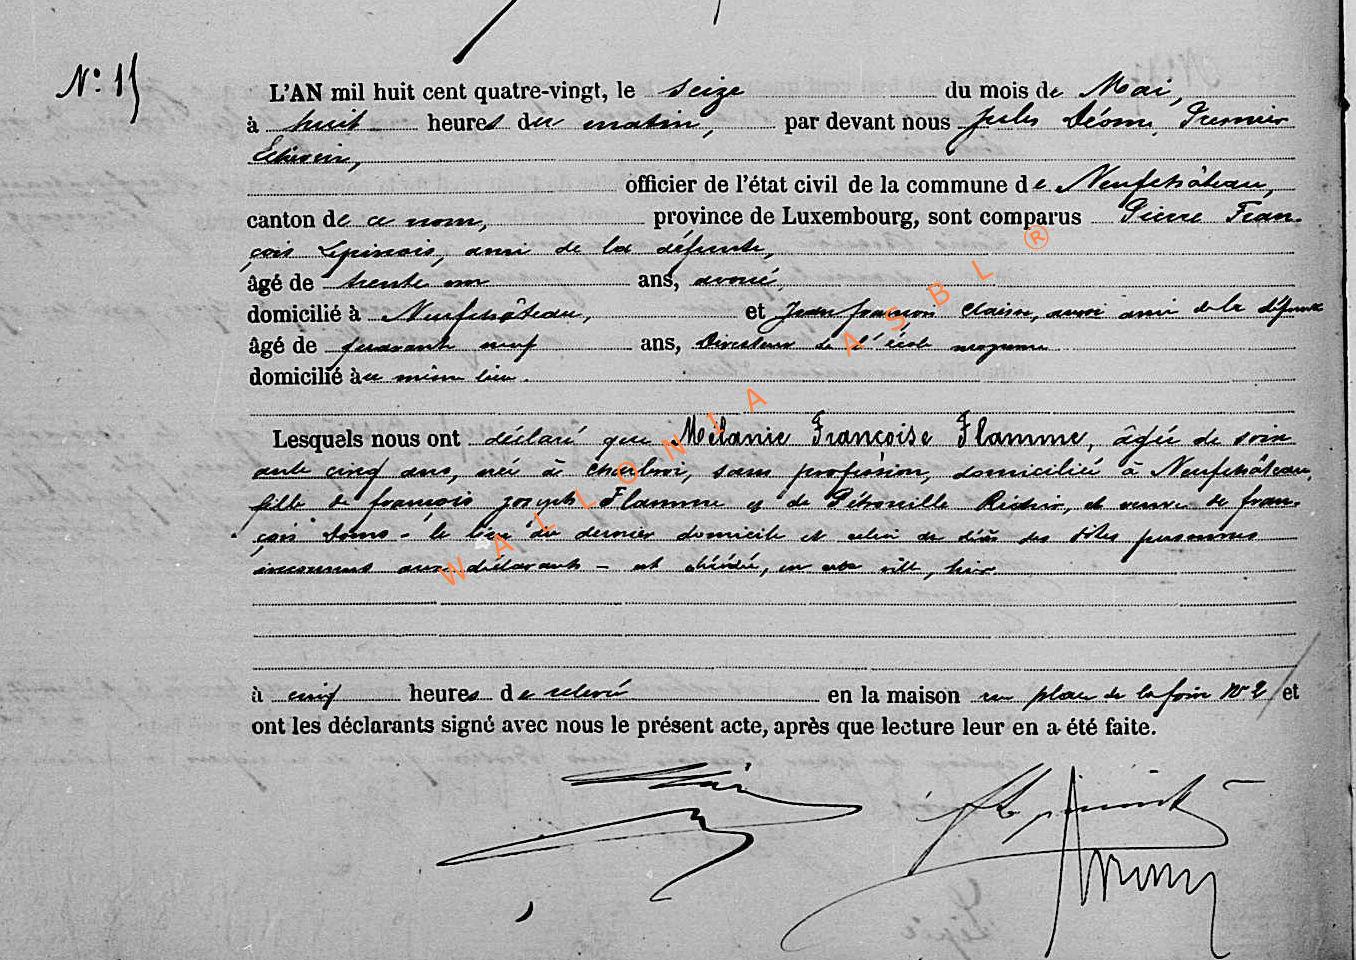 N° 15
L'AN mil huit cent quatre-vingt, le seize du mois de Mai,
à huit heures du matin, par devant nous Jules Déome, Premier
Echevin,
officier de l'état civil de la commune de Neufchâteau,
canton de ce nom, province de Luxembourg, sont comparus Pierre Fran-
çois Lepinois, ami de la défunte,
âgé de trente un ans, avoué,
domicilié à Neufchâteau, et Jean françois Claisse, aussi ami de la défunte
âgé de quarante neuf ans, Directeur de l'école moyenne
domicilié au même lieu.
Lesquels nous ont déclaré que Mélanie Françoise Flamme, âgée de soix
ante cinq ans, née à Charleroi, sans profession, domiciliée à Neufchâteau,
fille de françois joseph Flamme et de Pétronille Richir, et veuve de fran-
çois - le lieu du dernier domicile et celui de décès des dites personnes
inconnus aux déclarants - est décédée, en cette ville, hier
à cinq heures de relevée en la maison sise place de la foire N° 2 / et
ont les déclarants signé avec nous le présent acte, après que lecture leur en a été faite.
WALLONIA ASBL ®